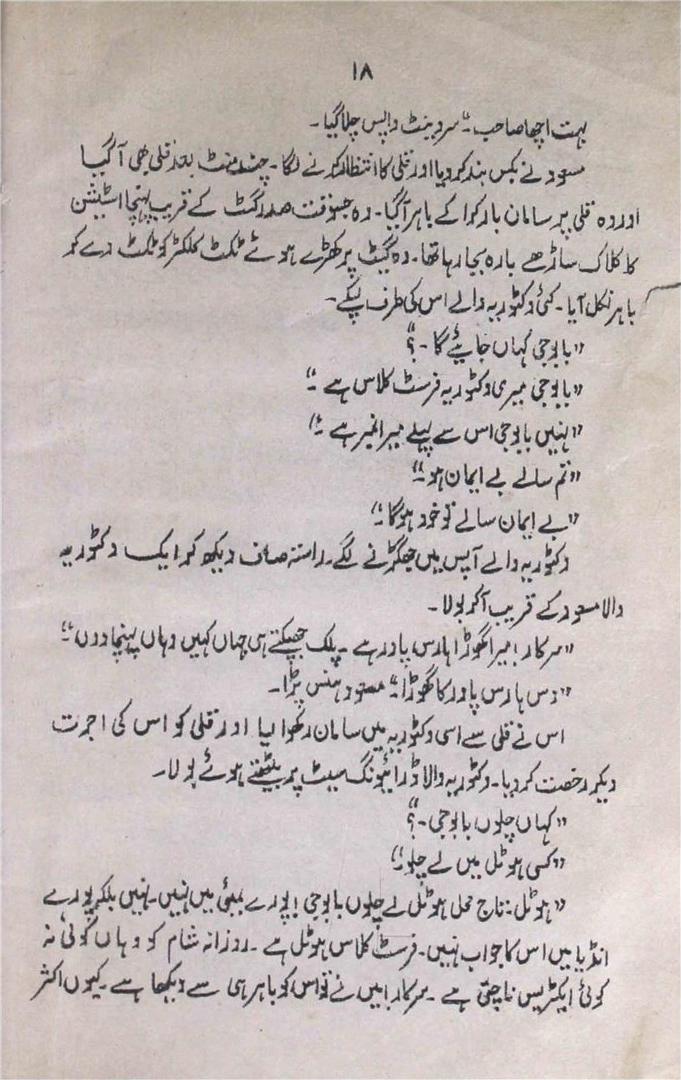 ۱۸
بہت اچھا صاحب۔“ سرونٹ واپس چلا گیا۔
مسعود نے بکس بند کر دیا اور قلی کا انتظار کرنے لگا۔ چند منٹ بعد قلی بھی آ گیا
اور وہ قلی پر سامان بار کرا کے باہر آگیا۔ وہ جسوقت صدر گیٹ کے قریب پہنچا اسٹیشن
کا کلاک ساڑھے بارہ بجا رہا تھا۔ وہ گیٹ پر کھڑے ہوئے ٹکٹ کلکٹر کو ٹکٹ دے کر
باہر نکل آیا۔ کئی وکٹوریہ والے اس کی طرف لپکے۔
”بابوجی کہاں جائیے گا۔؟“
”بابوجی میری وکٹوریہ فرسٹ کلاس ہے۔“
”نہیں بابوجی اس سے پہلے میرا نمبر ہے۔“
”تم سالے بے ایمان ہو۔“
”بے ایمان سالے تو خود ہوگا۔“
وکٹوریہ والے آپس میں جھگڑنے لگے۔ راستہ صاف دیکھ کر ایک وکٹوریہ
والا مسعود کے قریب آکر بولا۔
”سرکار! میرا گھوڑا ہارس پاور ہے۔ پلک جھپکتے ہی جہاں کہیں وہاں پہنچا دوں۔“
”دس ہارس پاور کا گھوڑا۔“ مسعود ہنس پڑا۔
اس نے قلی سے اسی وکٹوریہ میں سامان رکھوا لیا اور قلی کو اس کی اجرت
دیکر رخصت کر دیا۔ وکٹوریہ والا ڈرائیونگ سیٹ پر بیٹھتے ہوئے بولا۔
”کہاں چلوں بابوجی۔؟“
”کسی ہوٹل میں لے چلو۔“
”ہوٹل: تاج محل ہوٹل لے چلوں بابوجی! پورے بمبئی میں نہیں۔ نہیں بلکہ پورے
انڈیا میں اس کا جواب نہیں۔ فرسٹ کلاس ہوٹل ہے۔ روزانہ شام کو وہاں کوئی نہ
کوئی ایکٹریس ناچتی ہے۔ سرکار! میں نے تو اس کو باہر ہی سے دیکھا ہے۔ کیوں اکثر